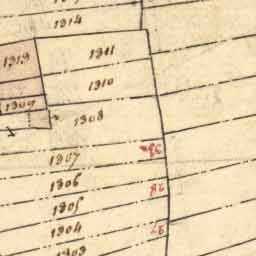 1314
1311
1313
1310
1309
1308
38
1307
1306
28
1305
1304
27
1303